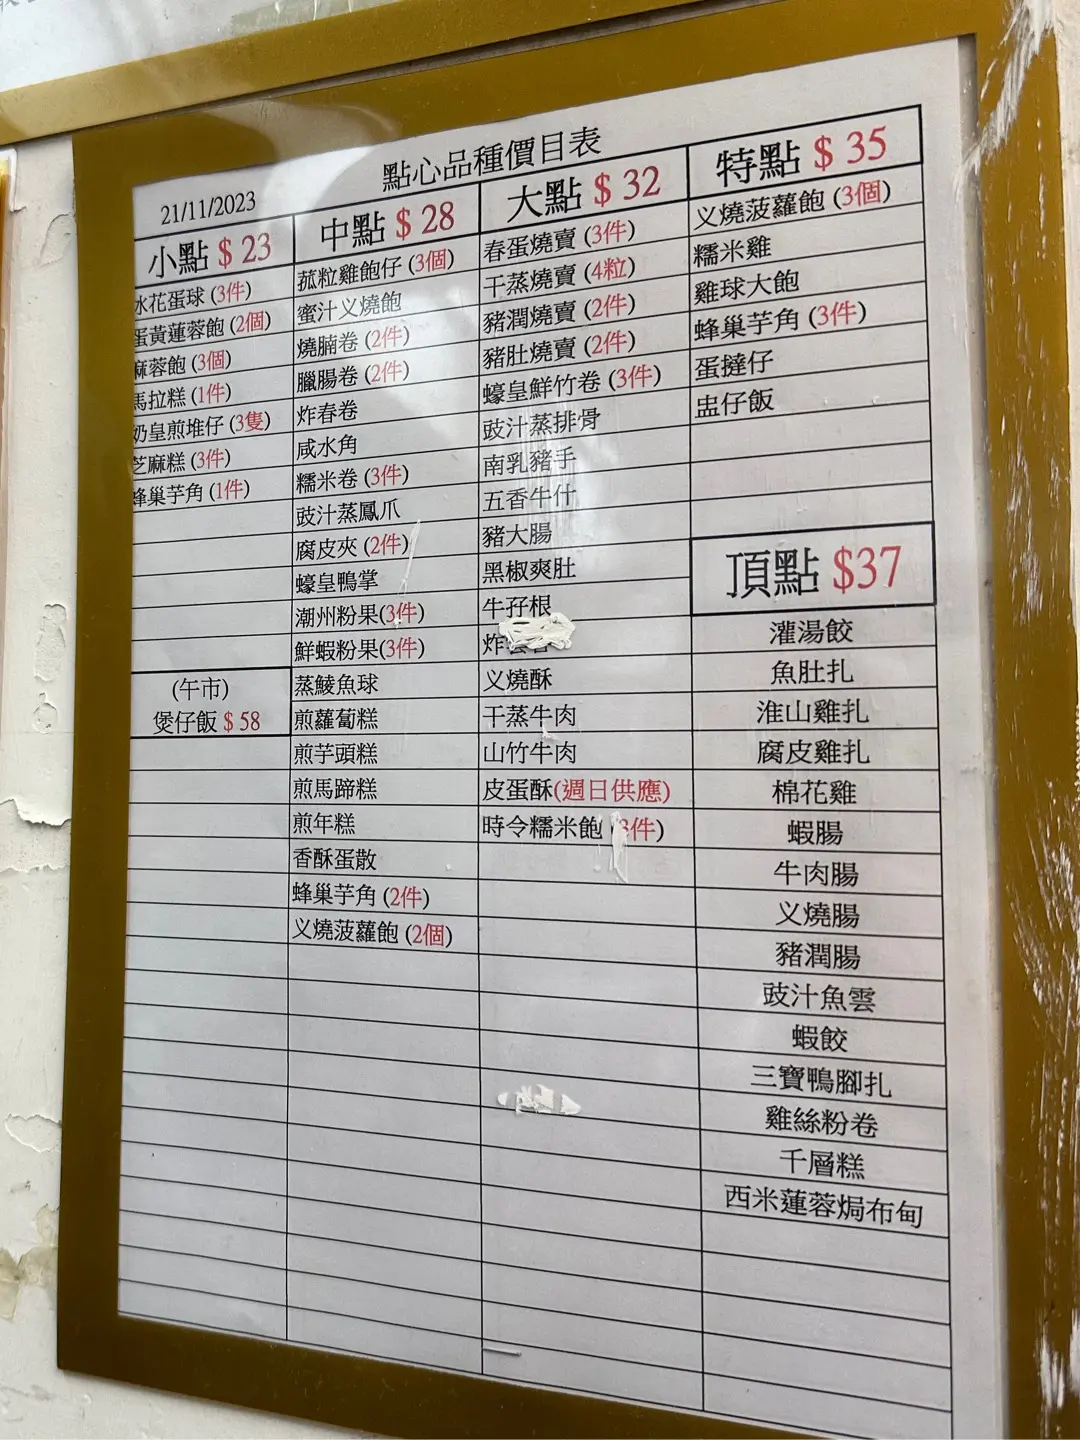 點心品種價目表
21/11/2023
小點 $ 23
冰花蛋球 (3件)
蛋黃蓮蓉飽 (2個)
麻蓉飽 (3個)
馬拉糕 (1件)
奶皇煎堆仔 (3隻)
芝麻糕 (3件)
蜂巢芋角 (1件)
(午市)
煲仔飯 $ 58
中點 $ 28
菰粒雞飽仔 (3個)
蜜汁义燒飽
燒腩卷 (2件)
臘腸卷 (2件)
炸春卷
咸水角
糯米卷 (3件)
豉汁蒸鳳爪
腐皮夾 (2件)
蠔皇鴨掌
潮州粉果(3件)
鮮蝦粉果(3件)
蒸鯪魚球
煎蘿蔔糕
煎芋頭糕
煎馬蹄糕
煎年糕
香酥蛋散
蜂巢芋角 (2件)
义燒菠蘿飽 (2個)
大點 $ 32
春蛋燒賣 (3件)
干蒸燒賣 (4粒)
豬潤燒賣 (2件)
豬肚燒賣 (2件)
蠔皇鮮竹卷 (3件)
豉汁蒸排骨
南乳豬手
五香牛什
豬大腸
黑椒爽肚
牛孖根
炸
义燒酥
干蒸牛肉
山竹牛肉
皮蛋酥(週日供應)
時令糯米飽 (3件)
特點 $ 35
义燒菠蘿飽 (3個)
糯米雞
雞球大飽
蜂巢芋角 (3件)
蛋撻仔
盅仔飯
頂點 $37
灌湯餃
魚肚扎
淮山雞扎
腐皮雞扎
棉花雞
蝦腸
牛肉腸
义燒腸
豬潤腸
豉汁魚雲
蝦餃
三寶鴨腳扎
雞絲粉卷
千層糕
西米蓮蓉焗布甸